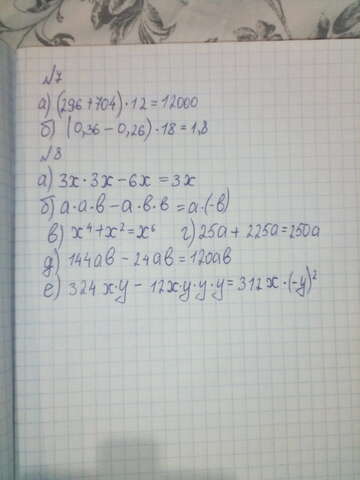 №7
а) (296+704)·12=12000
б) (0,36-0,26)·18=1,8
№8
а) 3x·3x-6x=3x
б) a·a·в-a·в·в=a·(-в)
в) x⁴+x²=x⁶ г) 25a+225a=250a
д) 144aв-24aв=120aв
е) 324x·y-12x·y·y·y=312x·(-y)²